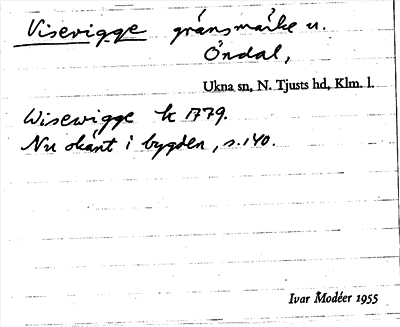 Visevigge gränsmärke u.
Öndal,
Ukna sn, N. Tjusts hd, Klm. l.
Wisewigge k 1779.
Nu okänt i bygden, s. 140.
Ivar Modéer 1955